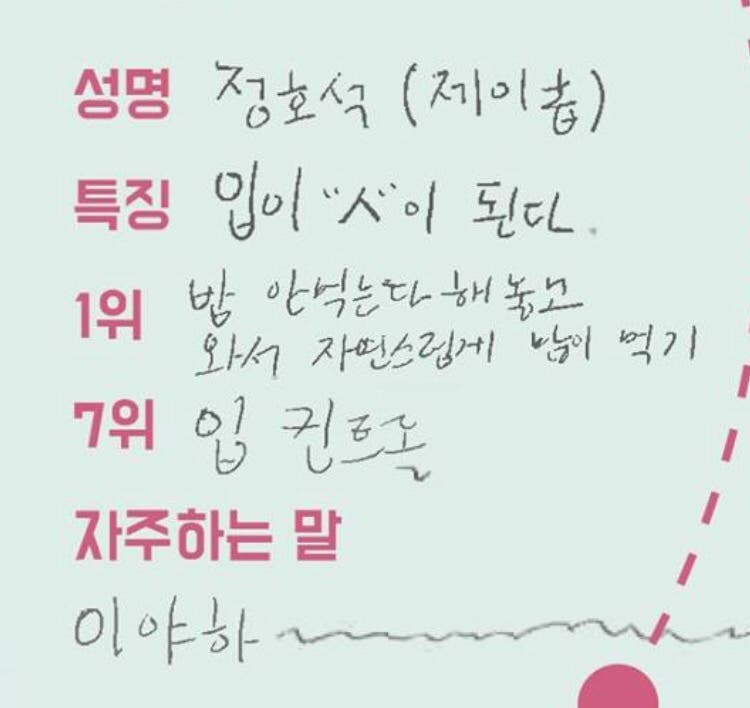 성명 정호석 (제이홉)
특징 입이 "ㅅ"이 된다.
1위 밥 안먹는다 해놓고
와서 자연스럽게 많이 먹기
7위 입 컨트롤
자주하는 말
이야하